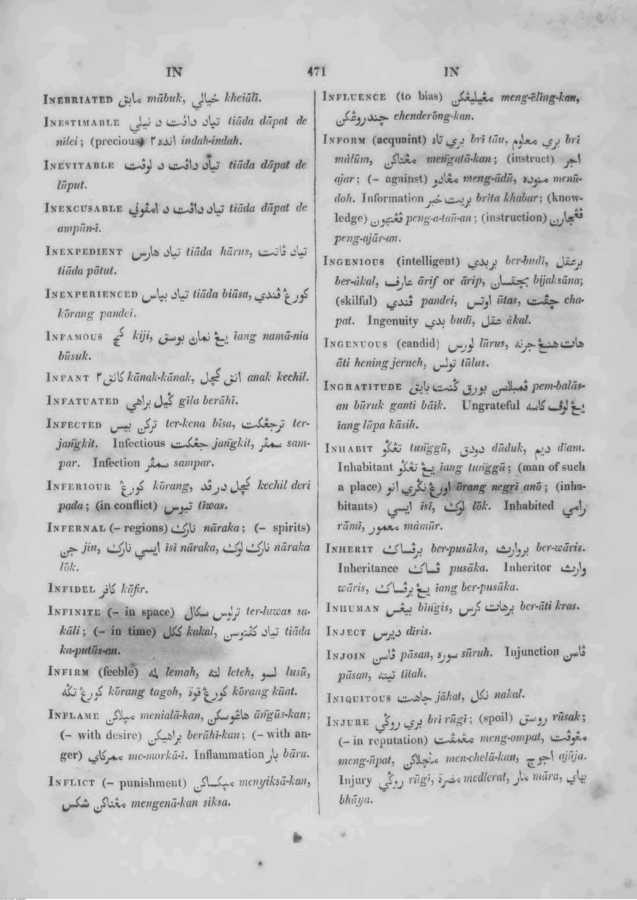 IN 471 IN
INEBRIATED مابق mābuk, خيالي kheiāli.
INESTIMABLE تياد داڤت د نيلي tiāda dāpat de
nilei; (precious) انده٢ indah-indah.
INEVITABLE تياد داڤت د لوڤت tiāda dāpat de
lūput.
INEXCUSABLE تياد داڤت د امڤوني tiāda dāpat de
ampūn-i.
INEXPEDIENT تياد هارس tiāda hārus, تياد ڤاتت
tiāda pātut.
INEXPERIENCED تياد بياس tiāda biāsa, كورڠ ڤندي
kōrang pandei.
INFAMOUS كجي kiji, يڠ نمان بوسق iang namā-nia
būsuk.
INFANT كانق٢ kānak-kānak, انق كچل anak kechil.
INFATUATED گيل براهي gīla berāhi.
INFECTED تركن بيس ter-kena bīsa, ترجڠكت ter-
jangkit. Infectious جڠكت jangkit, سمڤر sam-
par. Infection سمڤر sampar.
INFERIOUR كورڠ kōrang, كچل در ڤد kechil deri
pada; (in conflict) تيوس tīwas.
INFERNAL (– regions) نارك nāraka; (– spirits)
جن jin, ايسي نارك isi nāraka, لوك نارك nāraka
lōk.
INFIDEL كافر kāfir.
INFINITE (– in space) ترلوس سكالي ter-luwas sa-
kāli; (– in time) ككل kakal, تياد كڤتوسن tiāda
ka-putūs-an.
INFIRM (feeble) لمه lemah, لته leteh, لسو lusū,
كورڠ تگه kōrang tagoh, كورڠ قوة kōrang kūat.
INFLAME مڽالاكن menialā-kan, هاڠوسكن āngūs-kan;
(– with desire) براهيكن berāhi-kan; (– with an-
ger) ممركاي me-morkā-i. Inflammation بار bāra.
INFLICT (– punishment) مڽيكساكن menyiksā-kan,
مڠناكن شكس mengenā-kan siksa.
INFLUENCE (to bias) مڠيليڠكن meng-ēling-kan,
چندروڠكن chenderōng-kan.
INFORM (acquaint) بري تاو brī tāu, بري معلوم bri
mālūm, مڠتاكن mengatā-kan; (instruct) اجر
ajar; (– against) مڠادو meng-ādū, منوده menū-
doh. Information بريت خبر brīta khabar; (know-
ledge) ڤڠتهون peng-a-taū-an; (instruction) ڤڠجاران
peng-ajār-an.
INGENIOUS (intelligent) بربدي ber-budī, برعقل
ber-ākal, عارف ārif or ārip, بيجقسان bijaksāna;
(skilful) ڤندي pandei, اوتس ūtas, چڤت cha-
pat. Ingenuity بدي budī, عقل ākal.
INGENUOUS (candid) لورس lūrus, هات هنيڠ جرنه
āti hening jerneh, تولس tūlus.
INGRATITUDE ڤمبلاسن بورق گنت بايق pem-balās-
an būruk ganti bāik. Ungrateful يڠ لوڤ كاسه
iang lūpa kāsih.
INHABIT تڠگو tunggū, دودق dūduk, ديم diam.
Inhabitant يڠ تڠگو iang tunggū; (man of such
a place) اورڠ نگري انو ōrang negri anō; (inha-
bitants) ايسي isī, لوك lōk. Inhabited رامي
rāmī, معمور māmūr.
INHERIT برڤساك ber-pusāka, بروارث ber-wāris.
Inheritance ڤساك pusāka. Inheritor وارث
wāris, يڠ برڤساك iang ber-pusāka.
INHUMAN بيڠس bīngis, برهات كرس ber-āti kras.
INJECT ديرس dīris.
INJOIN ڤاسن pāsan, سوره sūruh. Injunction ڤاسن
pāsan, تيته tītah.
INIQUITOUS جاهت jāhat, نكل nakal.
INJURE بري روگي bri rūgī; (spoil) روسق rūsak;
(– in reputation) مڠمڤت meng-ompat, مڠوڤت
meng-ūpat, منچلاكن men-chelā-kan, اجوج ajūja.
Injury روگي rūgī, مضرة medlerat, مار māra, بهاي
bhāya.